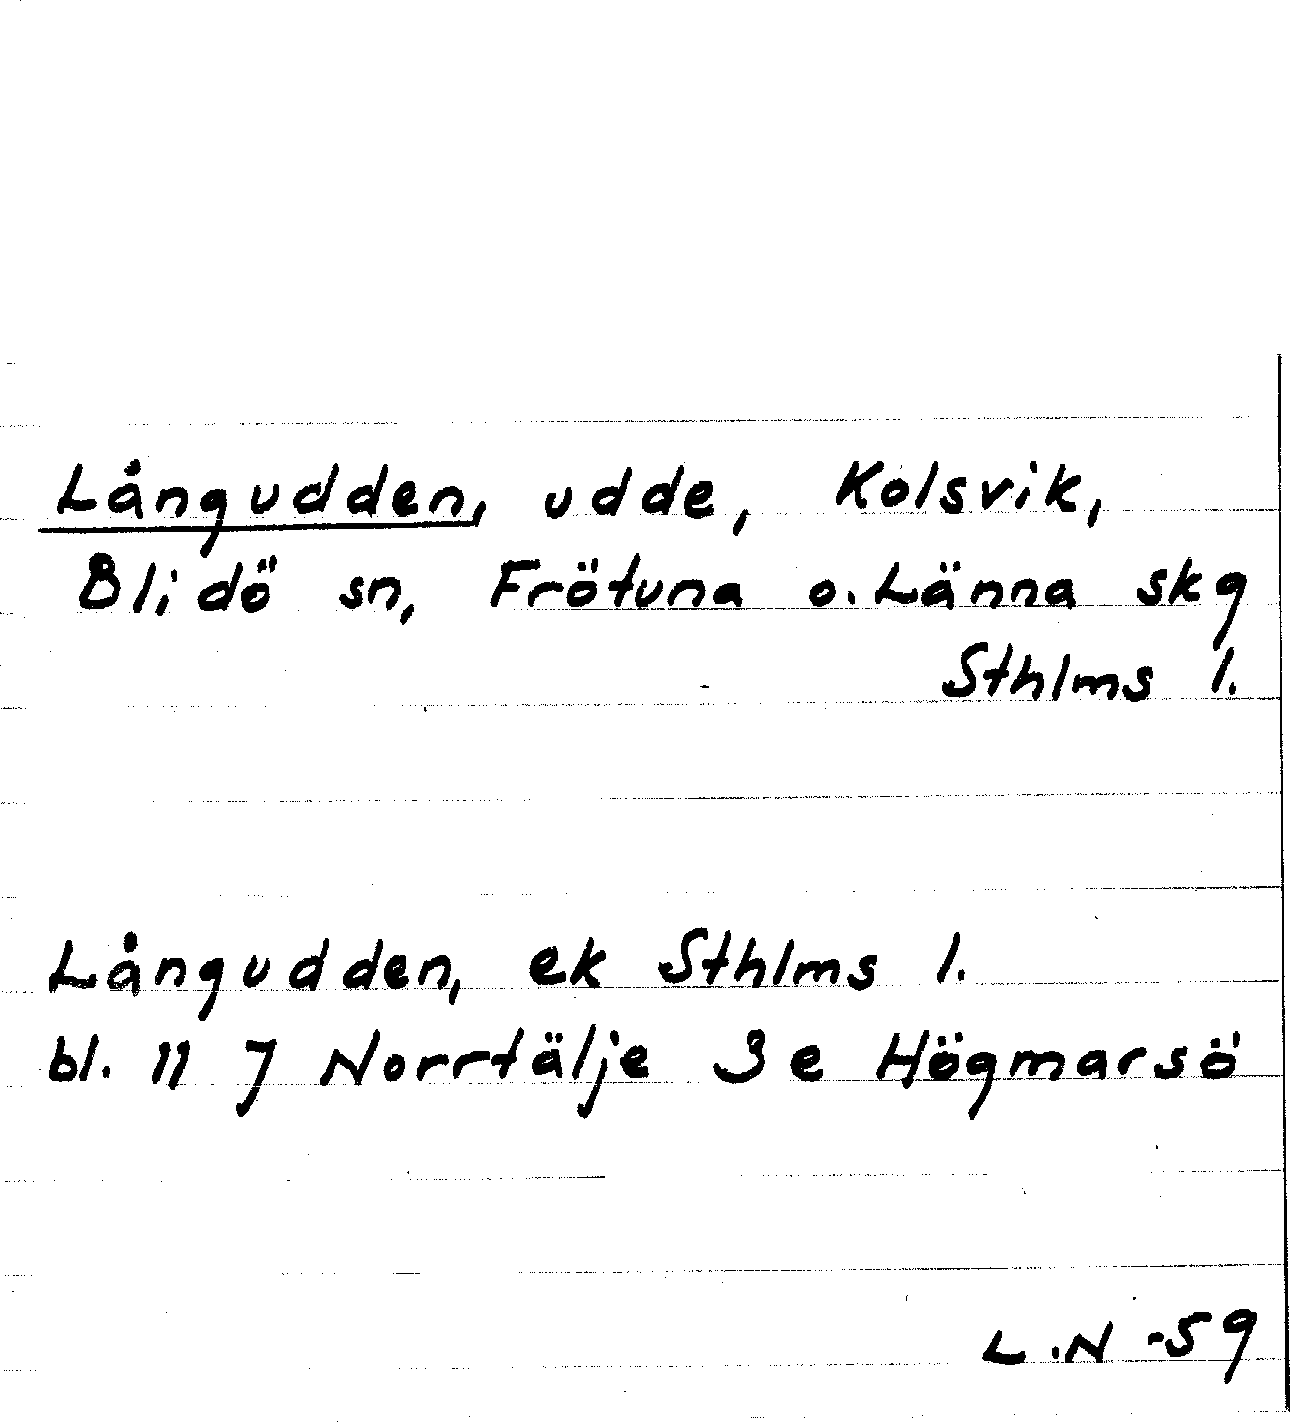 Långudden, udde, Kolsvik,
Blidö sn, Frötuna o. Länna skg
Sthlms l.
Långudden, ek Sthlms l.
bl. 11 J Norrtälje 3 e Högmarsö
L.N -59